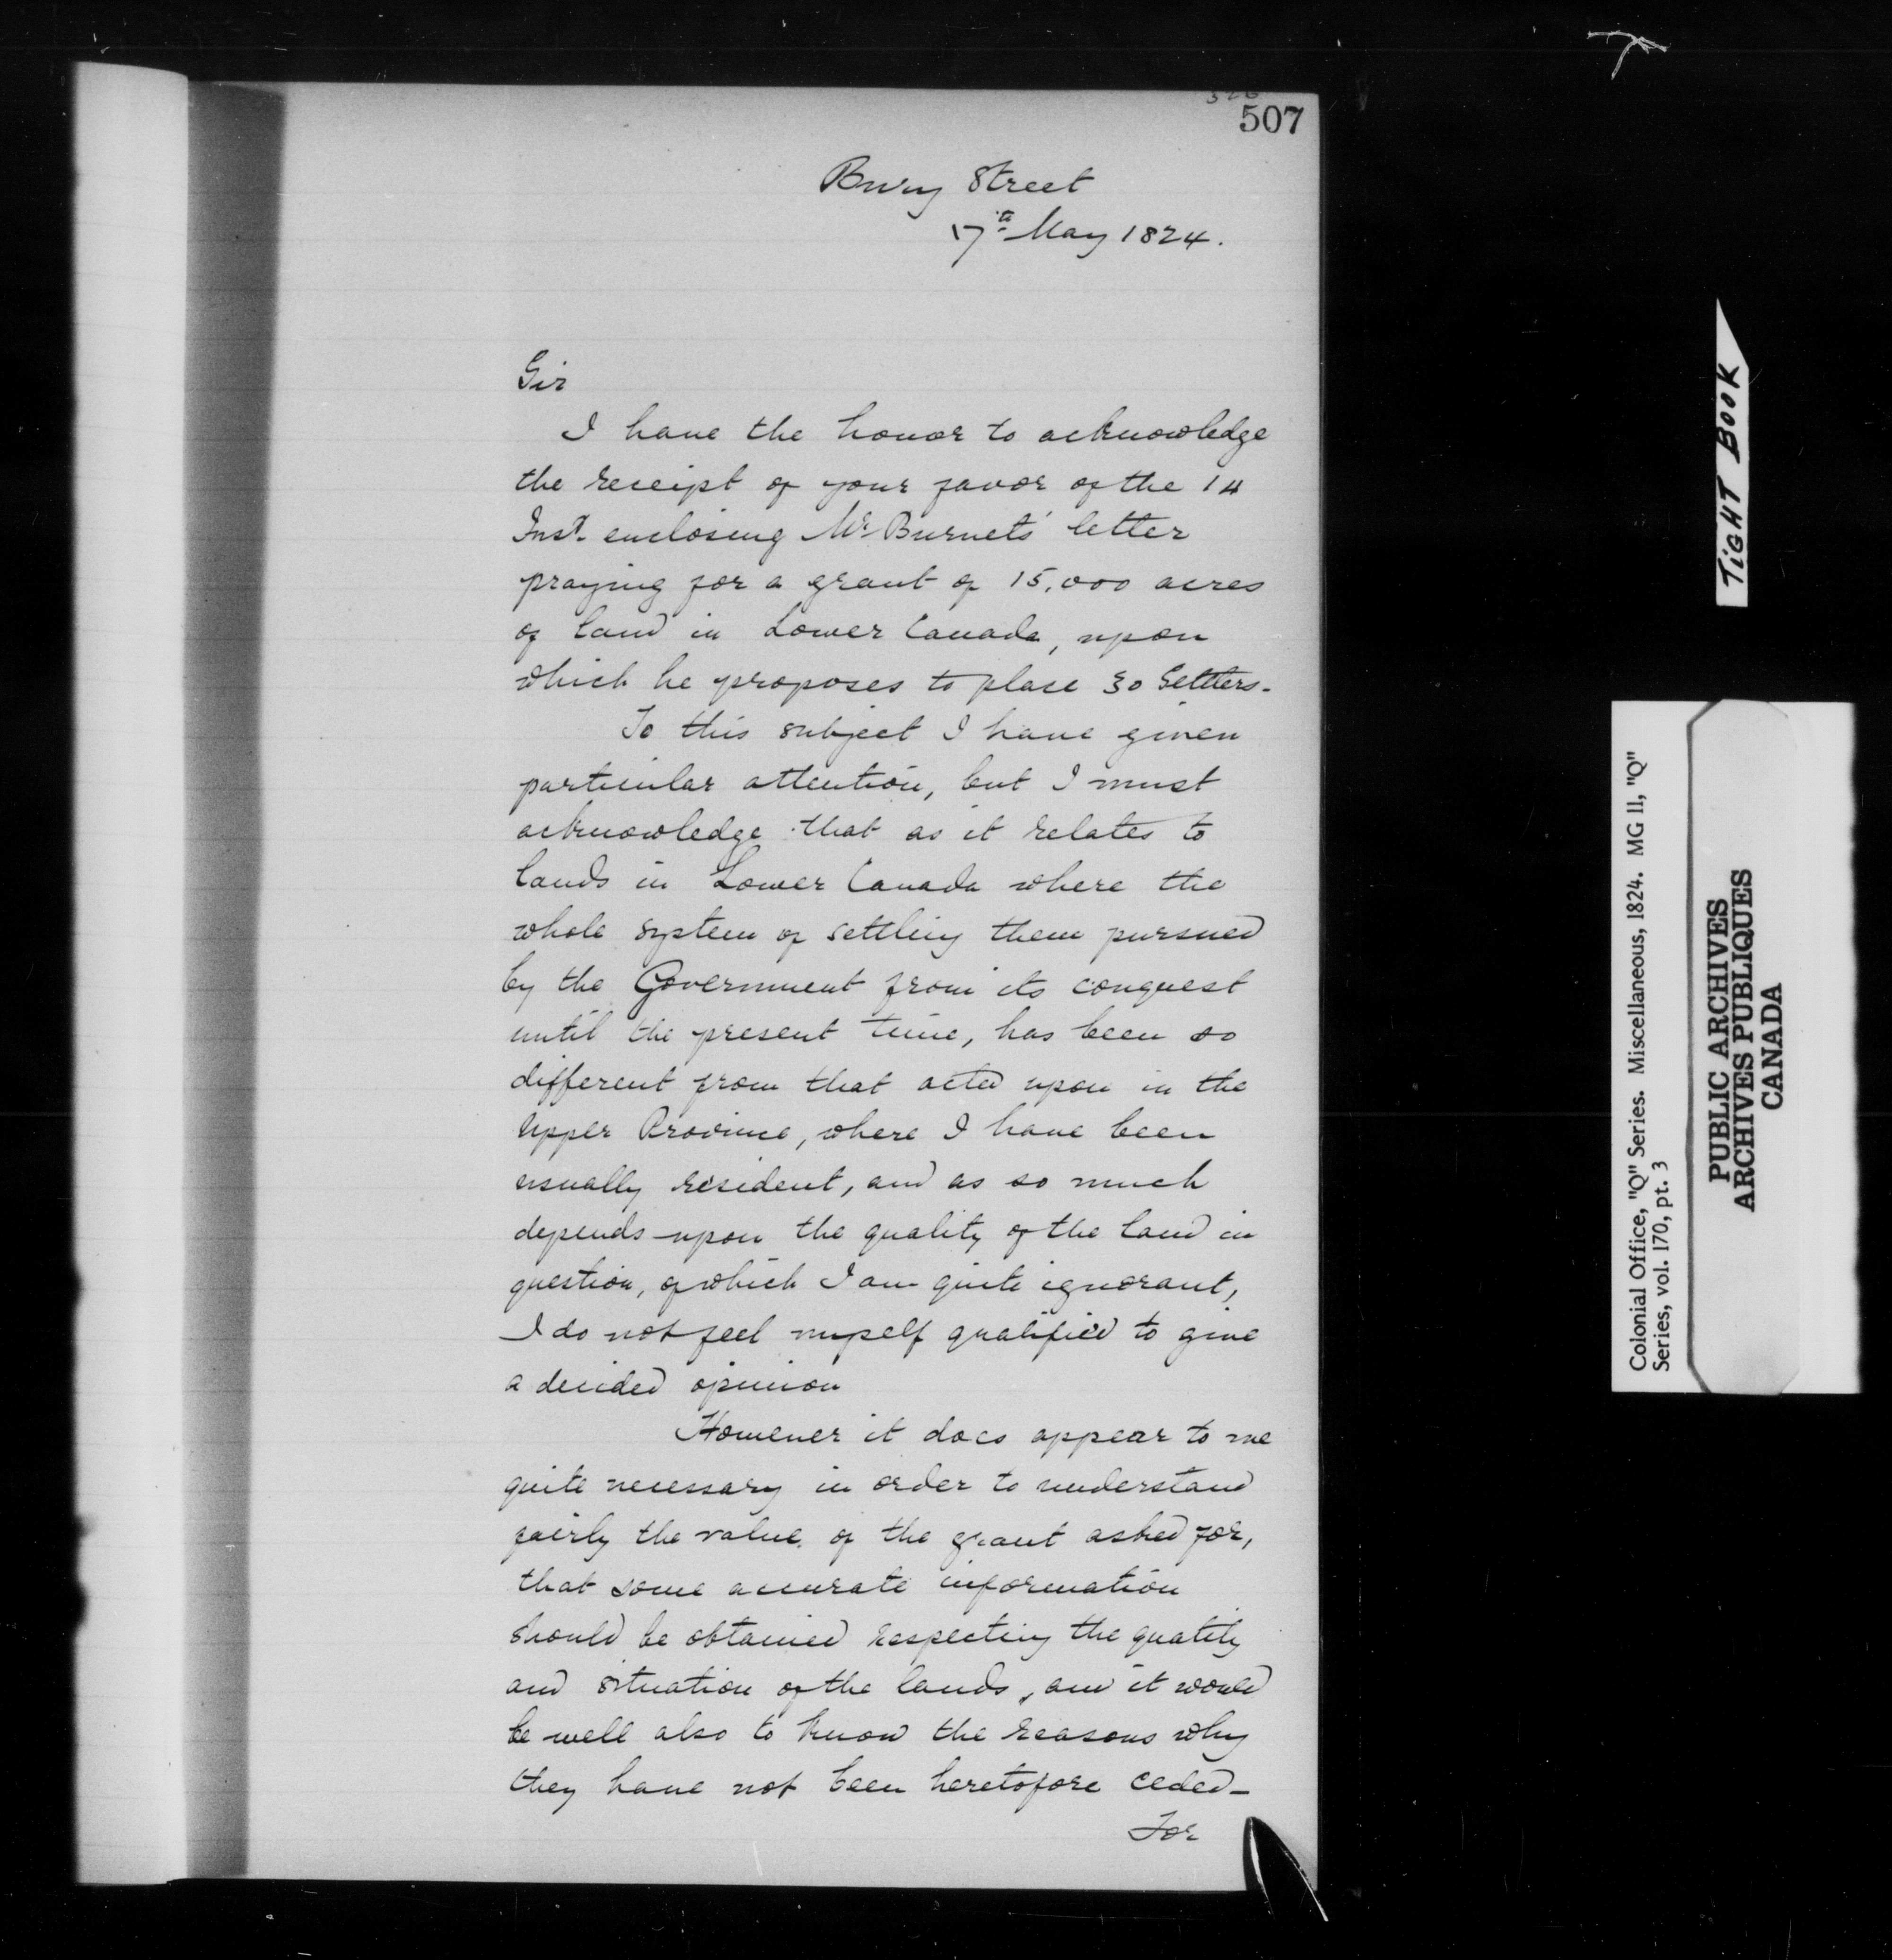 507
Bury Street
17th May 1824.
Sir
I have the honor to acknowledge
the receipt of your favor of the 14
Inst. enclosing Mr Burnets' letter
praying for a grant of 15,000 acres
of land in Lower Canada, upon
which he proposes to place 30 Settlers-
To this subject I have given
particular attention, but I must
acknowledge that as it relates to
lands in Lower Canada where the
whole system of settling them pursued
by the Government from its conquest
until the present time, has been so
different from that acted upon in the
Upper Province, where I have been
usually resident, and as so much
depends upon the quality of the land in
question, of which I am quite ignorant,
I do not feel myself qualified to give
a decided opinion
However it does appear to me
quite necessary in order to understand
fairly the value of the grant asked for,
that some accurate information
should be obtained respecting the quality
and situation of the lands, and it would
be well also to know the reasons why
they have not been heretofore ceded-
For
TIGHT BOOK
Colonial Office, "Q" Series. Miscellaneous, 1824. MG 11, "Q"
Series, vol. 170, pt. 3
PUBLIC ARCHIVES
ARCHIVES PUBLIQUES
CANADA